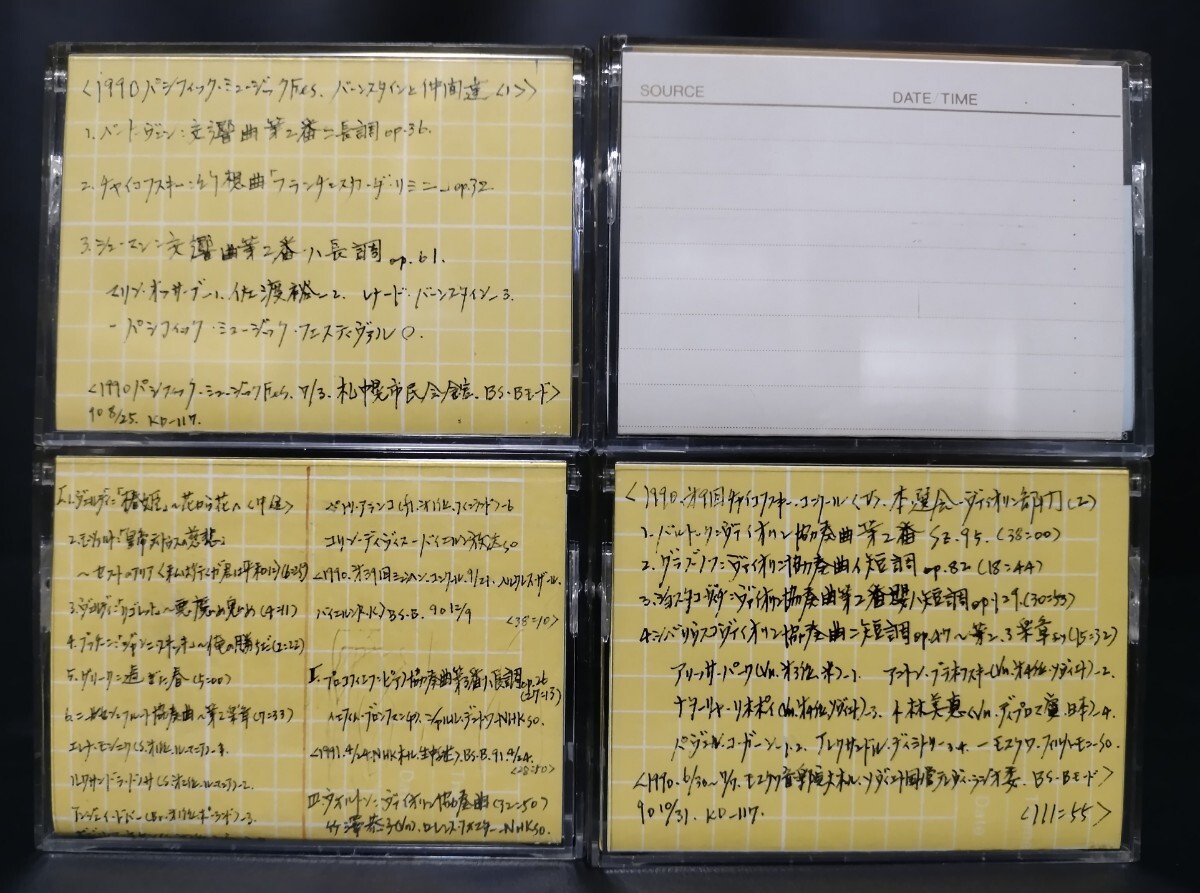 <1990パシフィック・ミュージックFes. バーンスタインと仲間達<1>>
1. ベートーヴェン:交響曲第2番ニ長調op.36.
2. チャイコフスキー:幻想曲「フランチェスカ・ダ・リミニ」op.32
3. シューマン:交響曲第2番ハ長調op.61.
マリン・オールサープ-1. 佐渡裕-2. レナード・バーンスタイン-3.
ーパシフィック・ミュージック・フェスティヴァルO.
<1990パシフィック・ミュージックFes. 7/3. 札幌市民会館. BS・Bモード>
90 8/25. KD-117.
SOURCE DATE/TIME
I.1.ヴェルディ:「椿姫」~花から花へ
2.モーツァルト:「皇帝ティトゥスの慈悲」
~セストのアリア
3.ヴェルディ:「リゴレット」~悪魔め鬼め(4=11)
4.プッチーニ:「ジャンニ・スキッキ」~
5.グリーク:過ぎた春(5=00)
6.ニールセン:フルート協奏曲~第2楽章(7=33)
ペトリ・アランコ(fl.第1位.フィンランド)-6
コリン・デイヴィス-バイエルン放送SO
<1990.第39回ミュンヘン・コンクール. 9/21. ヘルクレス・ザール.
バイエルンR.K>BS・B. 90 12/9
<38=10>
II.プロコフィエフ:ピアノ協奏曲第3番ハ長調op.26
イェフィム・ブロンフマン(P). シャルル・デュトワ-NHKSO.
<1991.4/24.NHKホール.生中継>. BS・B. 91.4/24.
<28=50>
III.ウォルトン:ヴァイオリン協奏曲(32=50)
竹澤恭子(Vn). ローレンス・フォスター-NHKSO.
<1990.第9回チャイコフスキー・コンクール<V>. 本選会-ヴァイオリン部門(2)
1. バルトーク:ヴァイオリン協奏曲第2番 SZ.95. (38=00)
2. グラズノフ:ヴァイオリン協奏曲イ短調 op.82 (18=44)
3. ショスタコーヴィチ:ヴァイオリン協奏曲第2番嬰ハ短調op.129.(30=53)
4. シベリウス:ヴァイオリン協奏曲ニ短調op.47~第2.3楽章より(15=32)
アリッサ・パーク(Vn.第3位.米)-1. アントン・ブラホフスキー(Vn.第4位.ソヴィエト)-2.
ナターリャ・リホポイ(Vn.第4位.ソヴィエト)-3. 小林美恵(Vn.ディプロマ賞.日本)-4.
パヴェル・コーガン-1.2. アレクサンドル・ディミトリー-3.4. ーモスクワ・フィルハーモニーSO.
<1990.6/30~7/1. モスクワ音楽院大ホール. ソヴィエト国営テレビ・ラジオ委. BS・Bモード>
90 10/31. KD-117. <111=55>